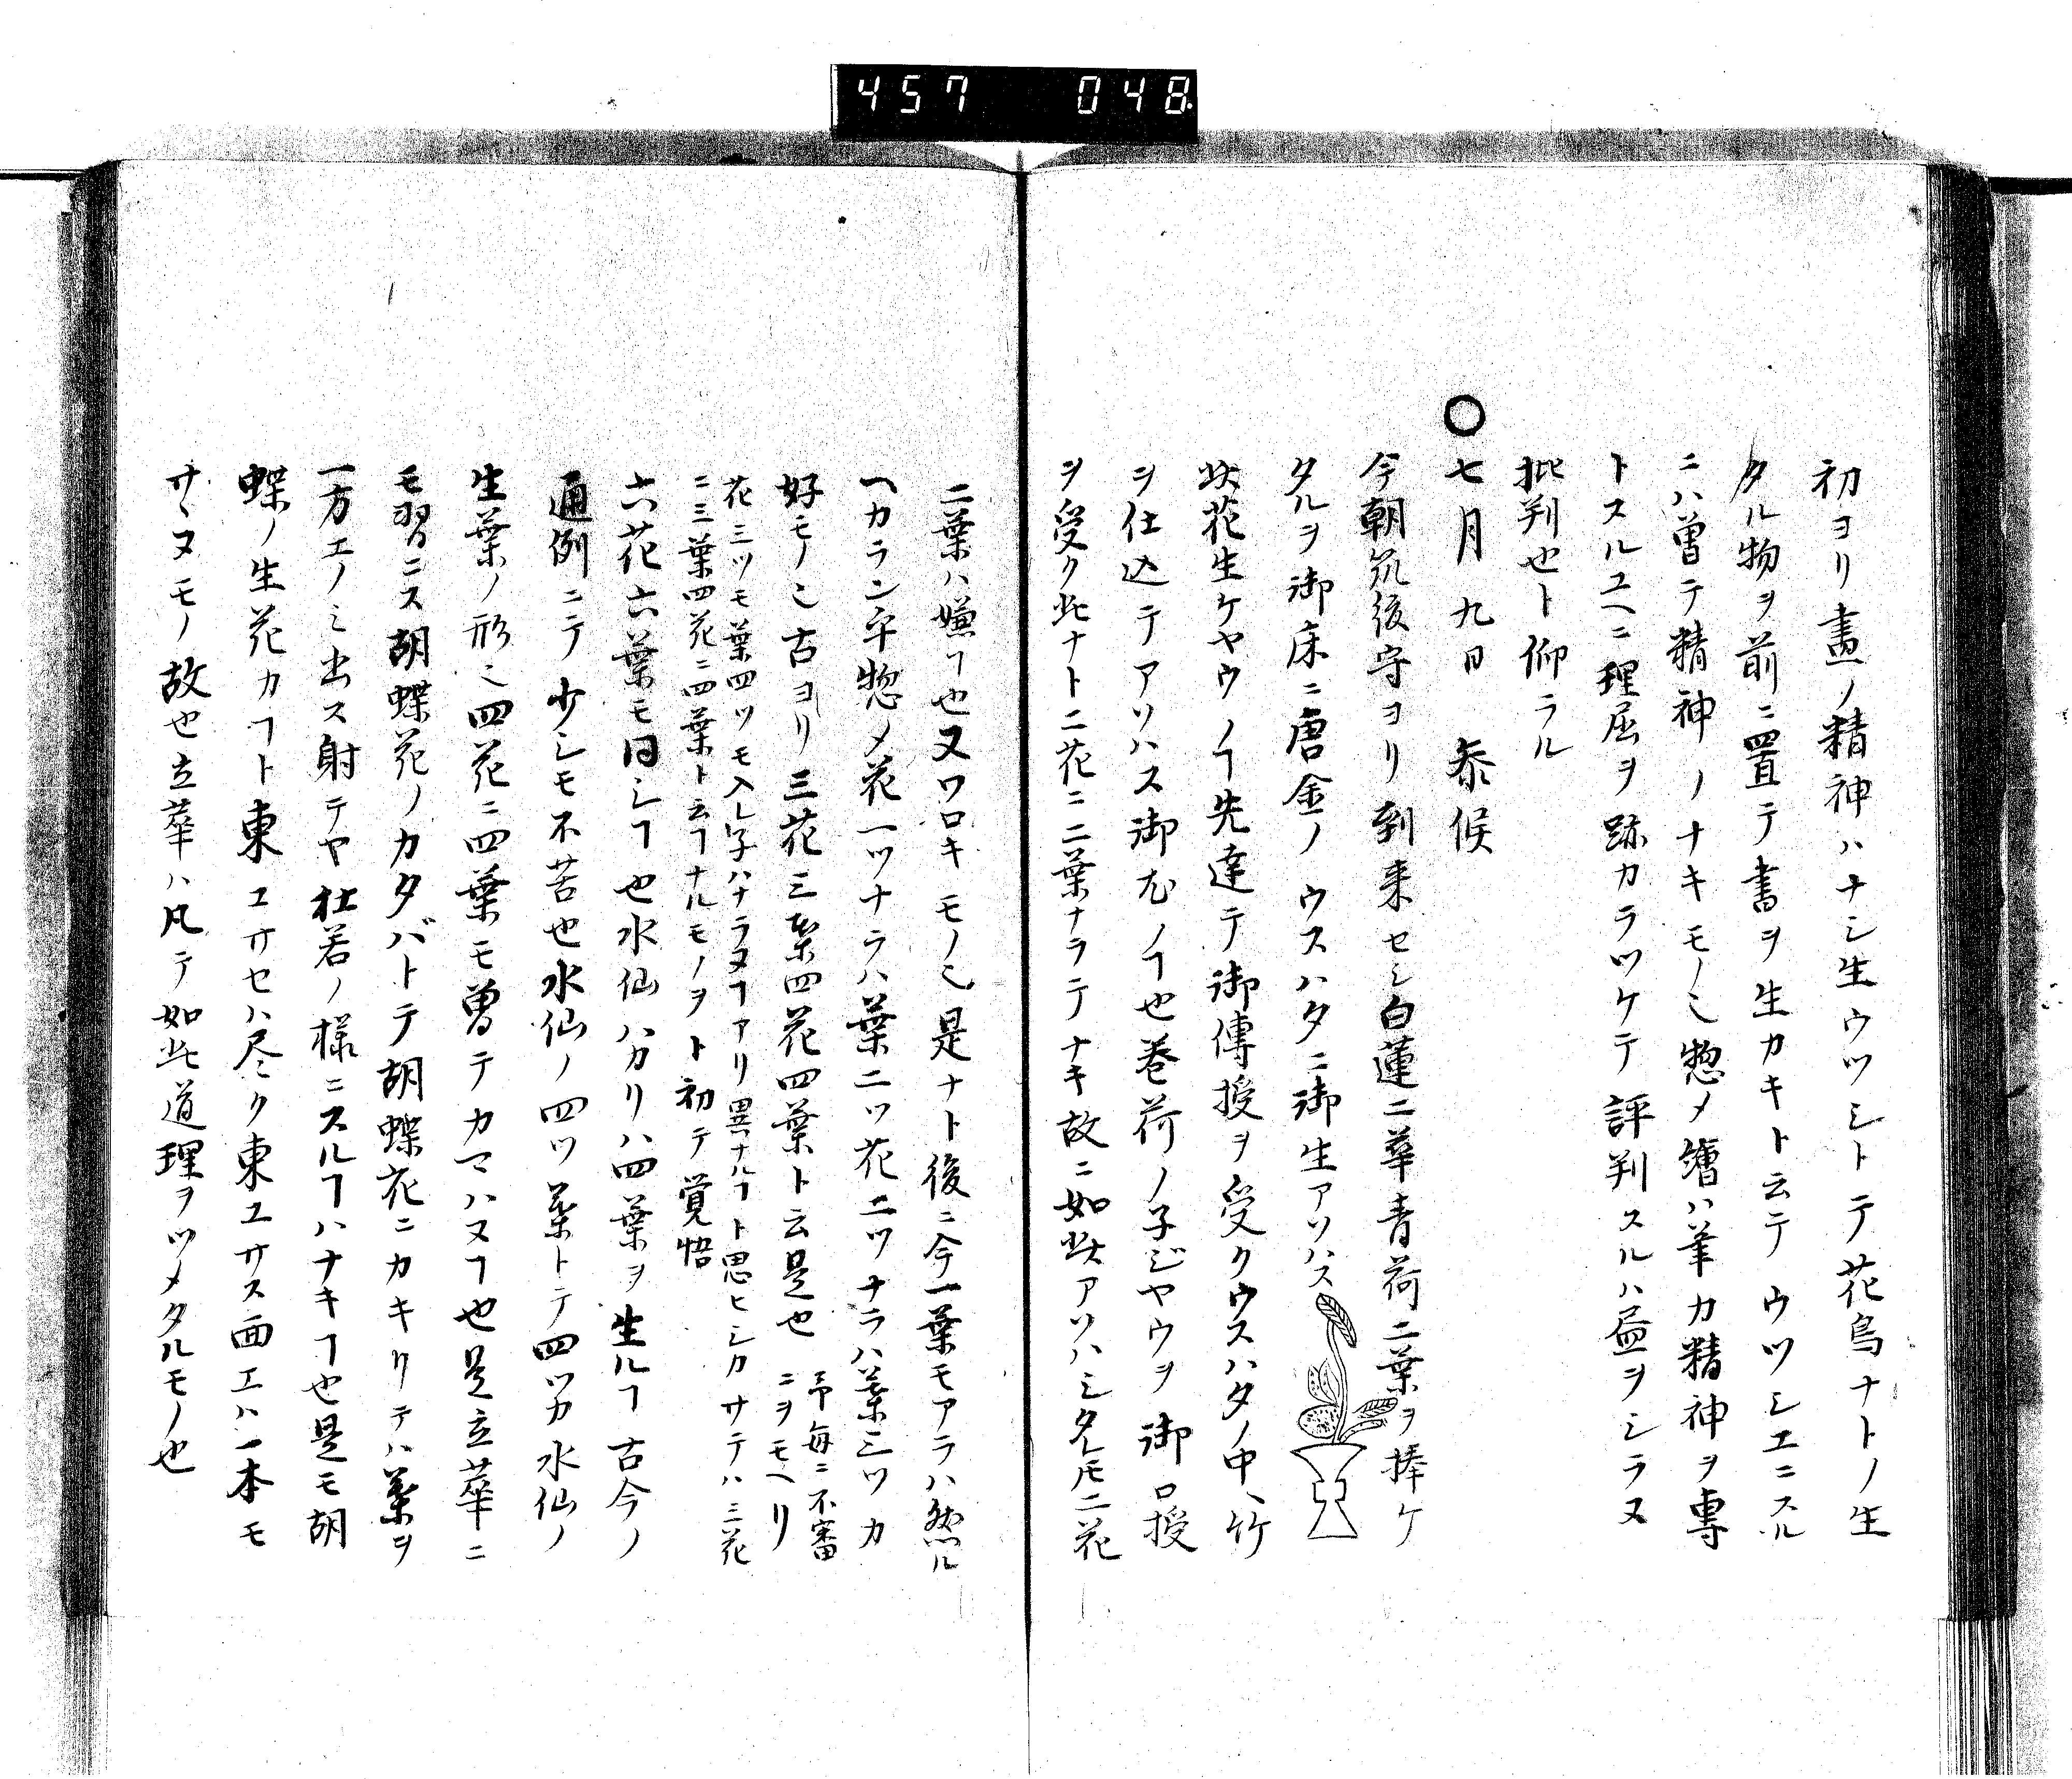 457 048
初ヨリ畫ノ精神ハナシ生ウツシトテ花鳥ナトノ生
タル物ヲ前ニ置テ書ヲ生カキト云テウツシエニスル
ニハ曽テ精神ノナキモノ也惣メ繪ハ筆カ精神ヲ専
トスルユヘニ理屈ヲ跡カラツケテ評判スルハ畫ヲシラヌ
批判也ト仰ラル
○七月九日 参候
今朝筑後守ヨリ到来セシ白蓮二華青荷二葉ヲ捧ケ
タルヲ御床ニ唐金ノウスハタニ御生アソハス
此花生ケヤウノヿ先達テ御傳授ヲ受クウスハタノ中ヘ竹
ヲ仕込テアソハス御尤ノヿ也巻荷ノ子ヂヤウヲ御口授
ヲ受ク此ナト二花ニ二葉ナラテナキ故ニ如此アソハシタレ𪜈二花
二葉ハ嫌フ也又ワロキモノ也是ナト後ニ今一葉モアラハ然ル
ヘカランヤ惣メ花一ツナラハ葉二ツ花二ツナラハ葉三ツカ
好モノ也古ヨリ三花三葉四花四葉ト云是也
予毎ニ不審
ニヲモヘリ
花三ツモ葉四ツモ入レ子ハナラヌヿアリ異ナルヿト思ヒシカサテハ三花
ニ三葉四花ニ四葉ト云フナルモノヲト初テ覚悟
六花六葉モ同シヿ也水仙ハカリハ四葉ヲ生ルヿ古今ノ
通例ニテ少シモ不苦也水仙ノ四ツ葉トテ四ツカ水仙ノ
生葉ノ形也四花ニ四葉モ曽テカマハヌヿ也是立華ニ
モ習ニス胡蝶花ノカタバトテ胡蝶花ニカキリテハ葉ヲ
一方エノミ出ス射干ヤ杜若ノ様ニスルヿハナキヿ也是モ胡
蝶ノ生花カヿト東エサセハ尽ク東エサス西エハ一本モ
サヽヌモノ故也立華ハ凡テ如此道理ヲツメタルモノ也